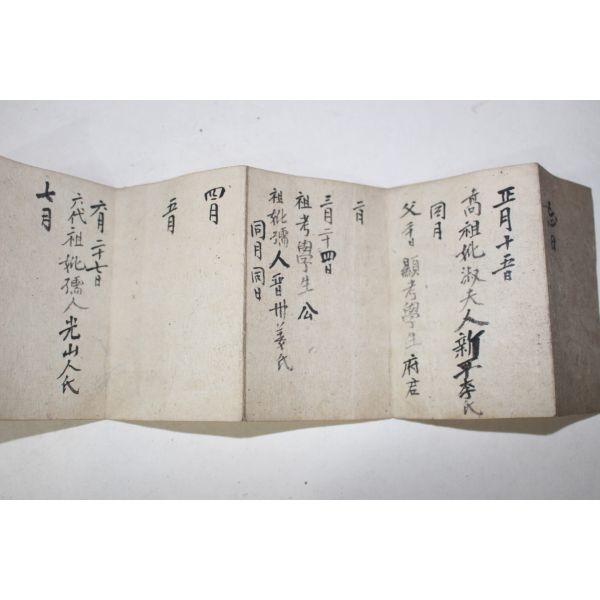 忌日
正月十五日
高祖妣淑夫人新平李氏
同月
父 顯考學生府君
二月
三月二十四日
祖考學生公
祖妣孺人晋州姜氏
同月同日
四月
五月
六月二十七日
六代祖妣孺人光山人氏
七月